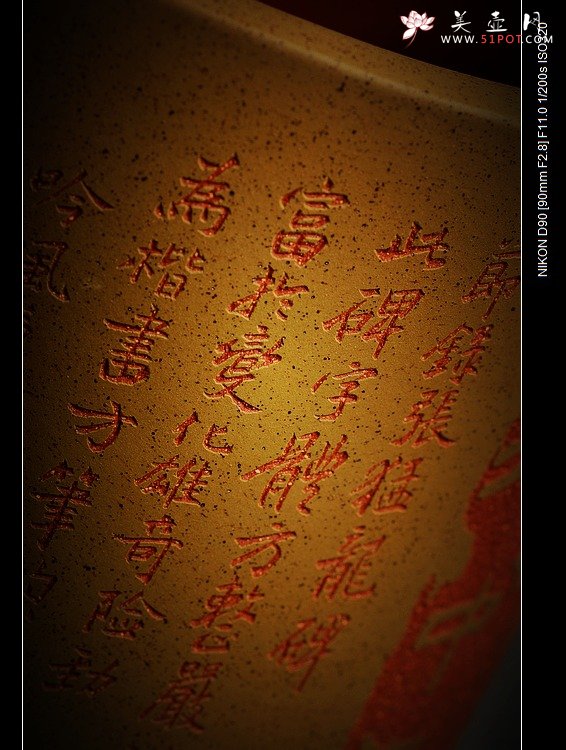 美壺网
WWW.51POT.COM
NIKON D90 [90mm F2.8] F11.0 1/200s ISO320
節錄張猛龍碑
此碑字體方整嚴
富於變化雄奇險勁
為楷書方筆
吟風